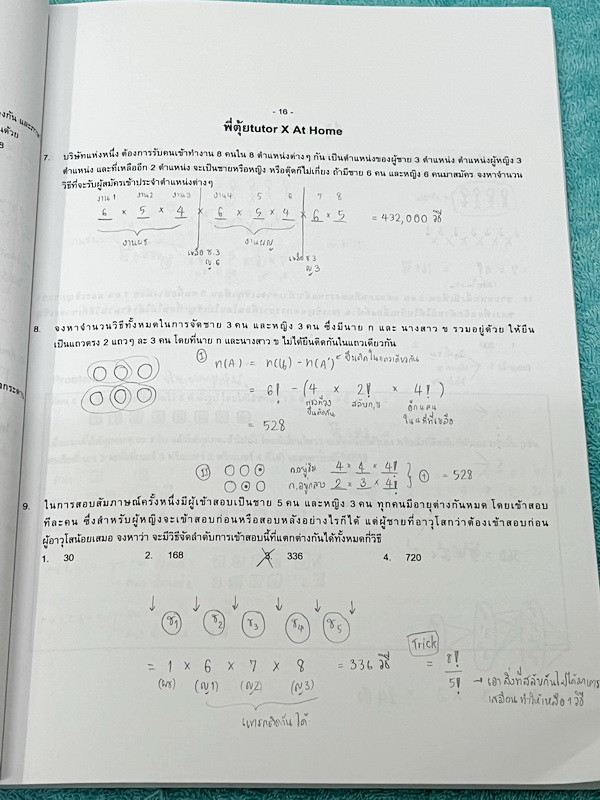 - 16 -
พี่ตุ้ยtutor X At Home
7. บริษัทแห่งหนึ่ง ต้องการรับคนเข้าทำงาน 8 คนใน 8 ตำแหน่งต่างๆ กัน เป็นตำแหน่งของผู้ชาย 3 ตำแหน่ง ตำแหน่งผู้หญิง 3
ตำแหน่ง และที่เหลืออีก 2 ตำแหน่ง จะเป็นชายหรือหญิง หรือตุ๊ดก็ไม่เกี่ยง ถ้ามีชาย 6 คน และหญิง 6 คนมาสมัคร จงหาจำนวน
วิธีที่จะรับผู้สมัครเข้าประจำตำแหน่งต่างๆ
งาน1 งาน2 งาน3 งาน4 5 6 7 8
6 × 5 × 4 × 6 × 5 × 4 × 6 × 5 = 432,000 วิธี
งานผช งานผญ
เหลือ ช.3 ญ.6
เหลือ ช.3 ญ.3
8. จงหาจำนวนวิธีทั้งหมดในการจัดชาย 3 คน และหญิง 3 คน ซึ่งมีนาย ก และ นางสาว ข รวมอยู่ด้วย ให้ยืน
เป็นแถวตรง 2 แถวๆ ละ 3 คน โดยที่นาย ก และนางสาว ข ไม่ได้ยืนติดกันในแถวเดียวกัน
I n(A) = n(U) - n(A') ยืนติดในแถวเดียวกัน
= 6! - (4 × 2! × 4!)
สลับ ก,ข
ยืนติดกัน
อีก 4 คน
ใน 4 ที่ที่เหลือ
= 528
II ก.อยู่ริม 4 × 4 × 4!
ก.อยู่กลาง 2 × 3 × 4! + = 528
9. ในการสอบสัมภาษณ์ครั้งหนึ่งมีผู้เข้าสอบเป็นชาย 5 คน และหญิง 3 คน ทุกคนมีอายุต่างกันหมด โดยเข้าสอบ
ทีละคน ซึ่งสำหรับผู้หญิงจะเข้าสอบก่อนหรือสอบหลังอย่างไรก็ได้ แต่ผู้ชายที่อาวุโสกว่าต้องเข้าสอบก่อน
ผู้อาวุโสน้อยเสมอ จงหาว่า จะมีวิธีจัดลำดับการเข้าสอบนี้ที่แตกต่างกันได้ทั้งหมดกี่วิธี
1. 30 2. 168 3. 336 4. 720
ช1 ช2 ช3 ช4 ช5
= 1 × 6 × 7 × 8 = 336 วิธี
(ผช) (ญ1) (ญ2) (ญ3)
แทรกติดกันได้
Trick
= 8!/5! → เอาสิ่งที่สลับกันไม่ได้มาหาร
เสมือนทำให้เหลือ 1 วิธี